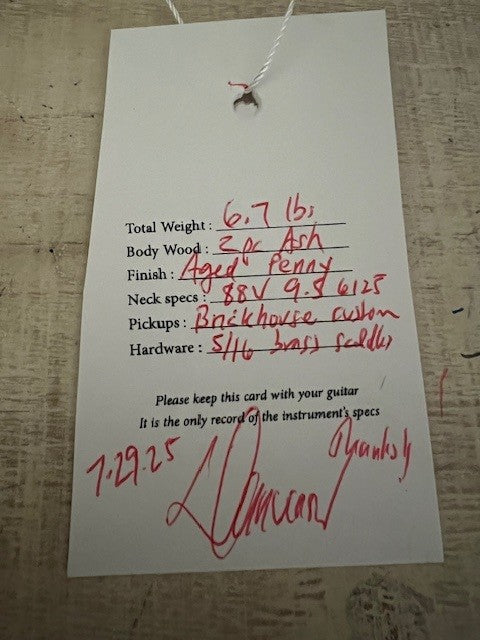 Total Weight : 6.7 lbs
Body Wood : 2 pc Ash
Finish : Aged Penny
Neck specs : 88V 9.5 6125
Pickups : Brickhouse custom
Hardware : 5/16 brass saddles
Please keep this card with your guitar
It is the only record of the instrument's specs
Thanks!
7.29.25